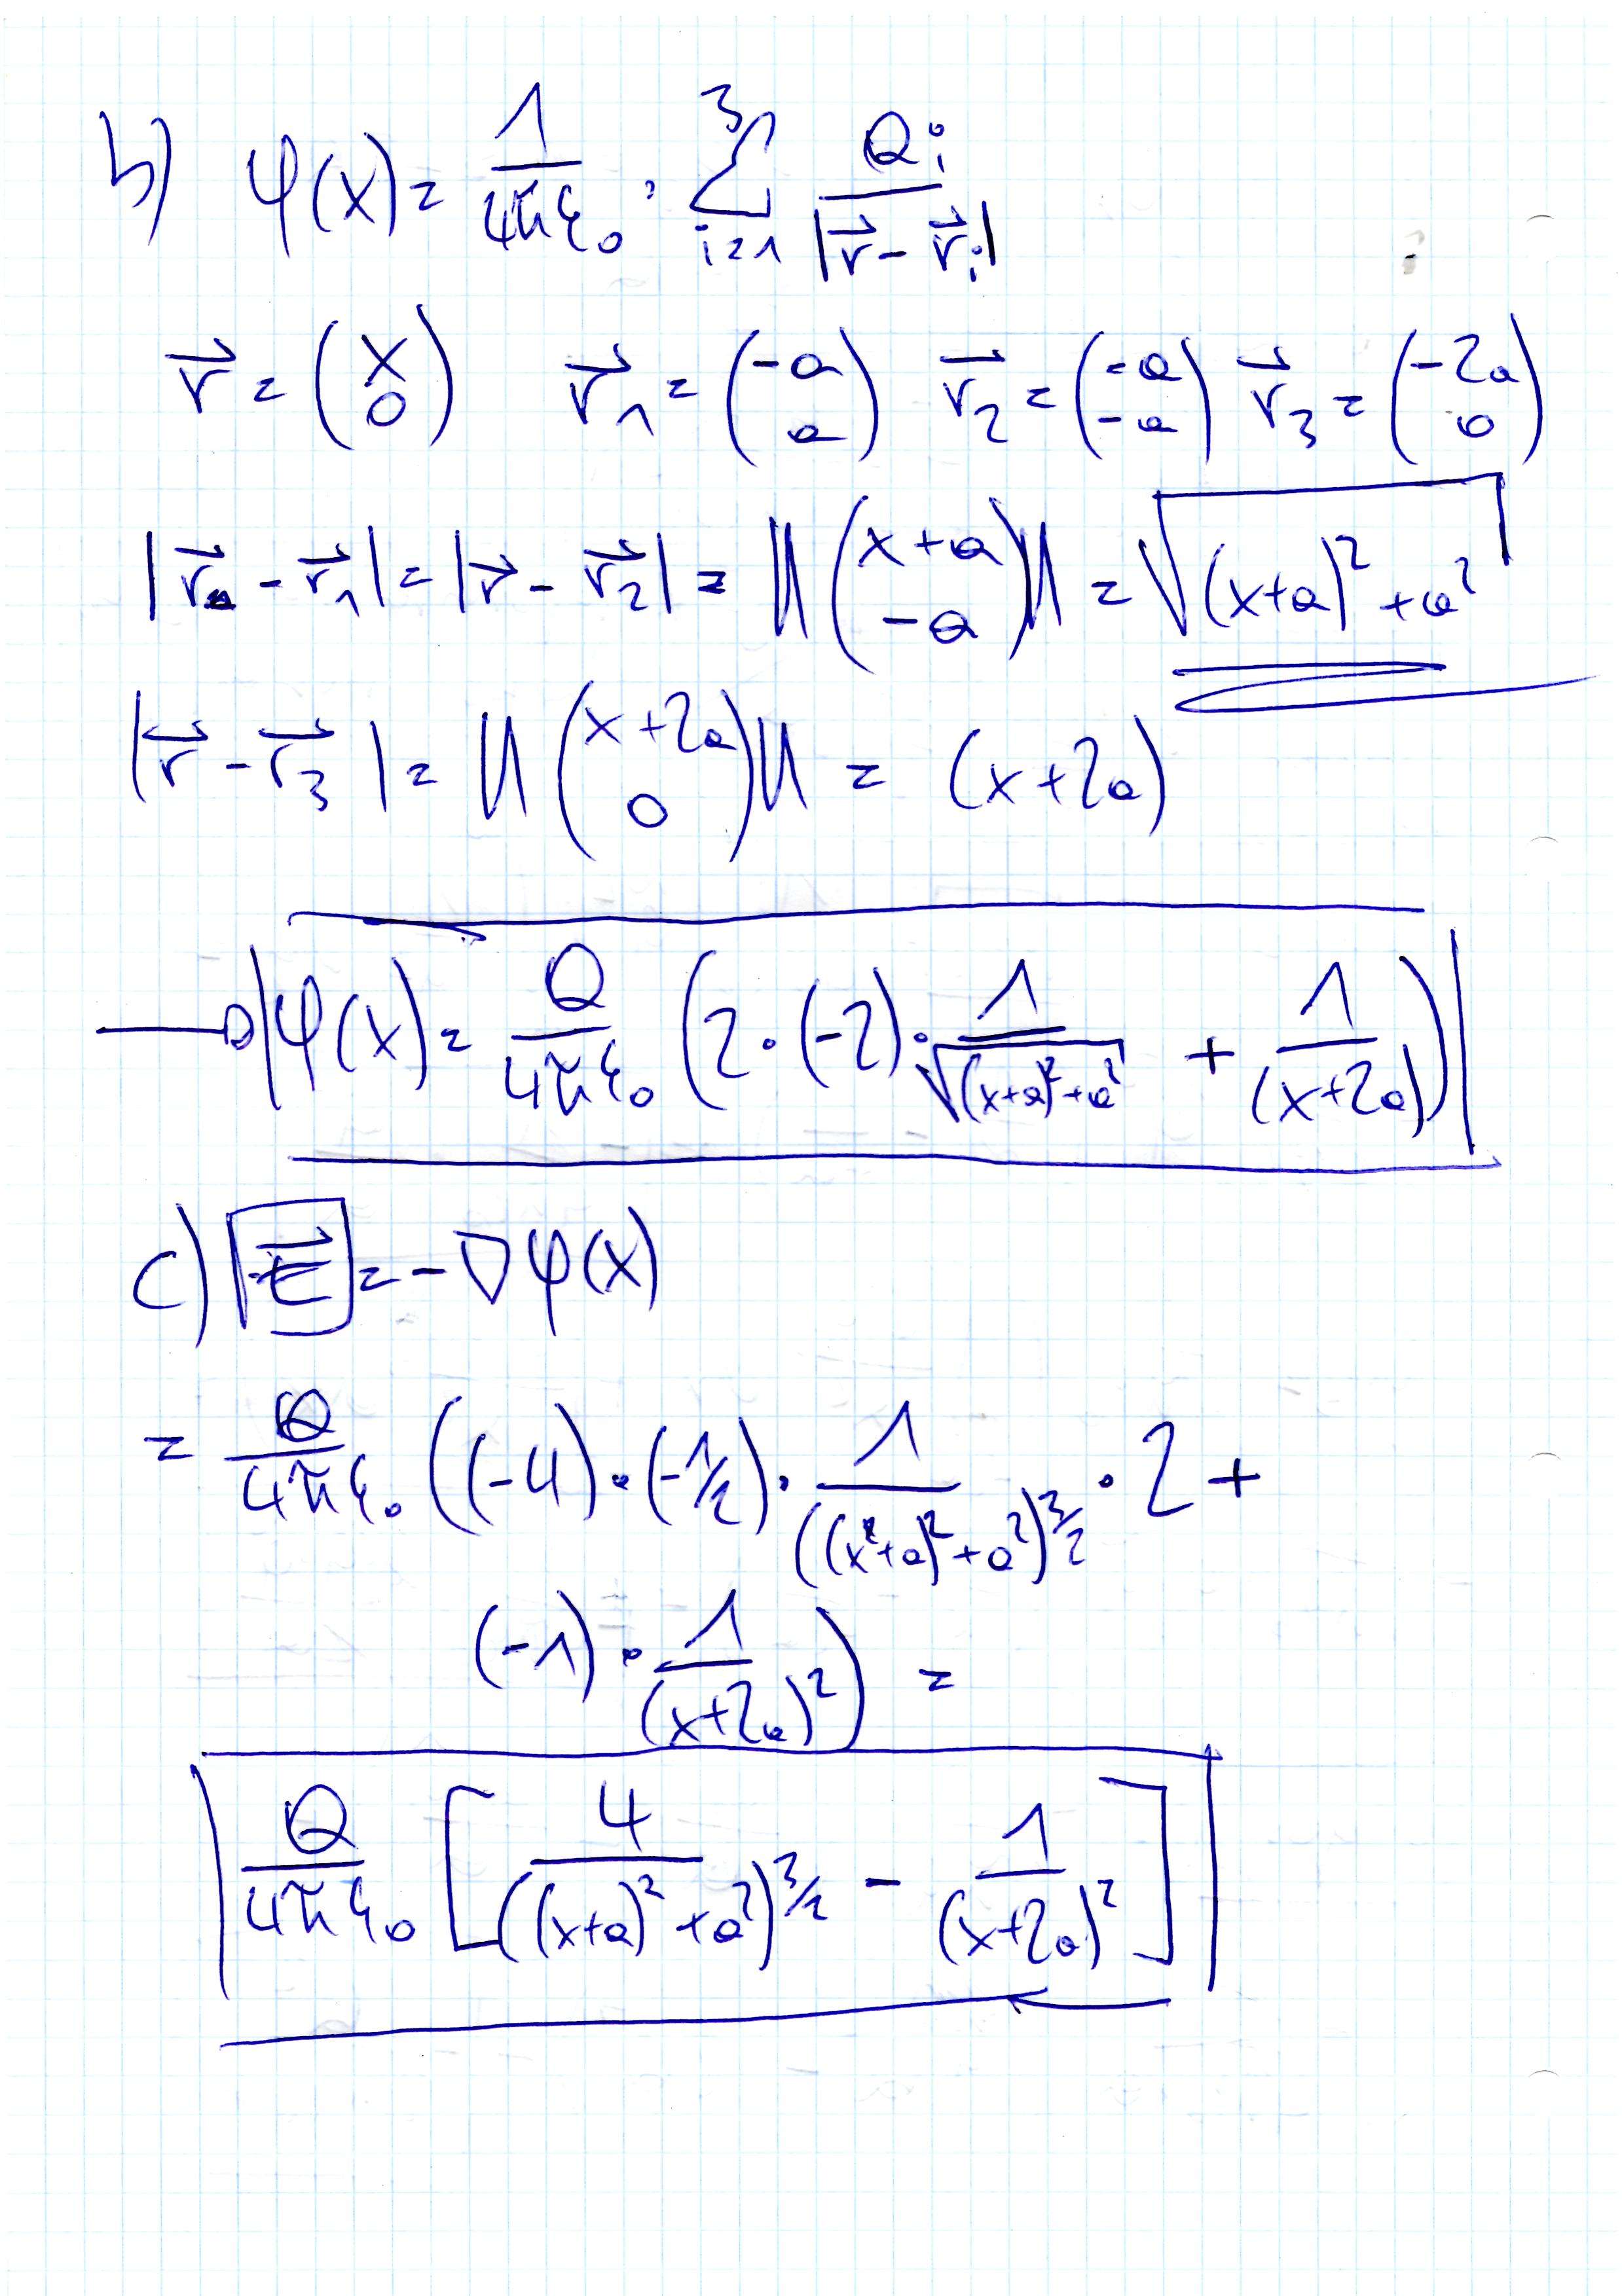 b) φ(x) = 1/(4πε₀) · Σ_{i=1}^{3} Q_i/|r⃗ - r⃗_i|
r⃗ = (x 0) r⃗_1 = (-a a) r⃗_2 = (-a -a) r⃗_3 = (-2a 0)
|r⃗ - r⃗_1| = |r⃗ - r⃗_2| = ||(x+a -a)|| = √((x+a)² + a²)
|r⃗ - r⃗_3| = ||(x+2a 0)|| = (x+2a)
→ φ(x) = Q/(4πε₀) (2·(-2)· 1/√((x+a)²+a²) + 1/(x+2a))
c) E⃗ = -∇φ(x)
= Q/(4πε₀) ((-4)·(-1/2)· 1/((x+a)²+a²)^{3/2} · 2 +
(-1)· 1/(x+2a)²) =
Q/(4πε₀) [4/((x+a)²+a²)^{3/2} - 1/(x+2a)²]